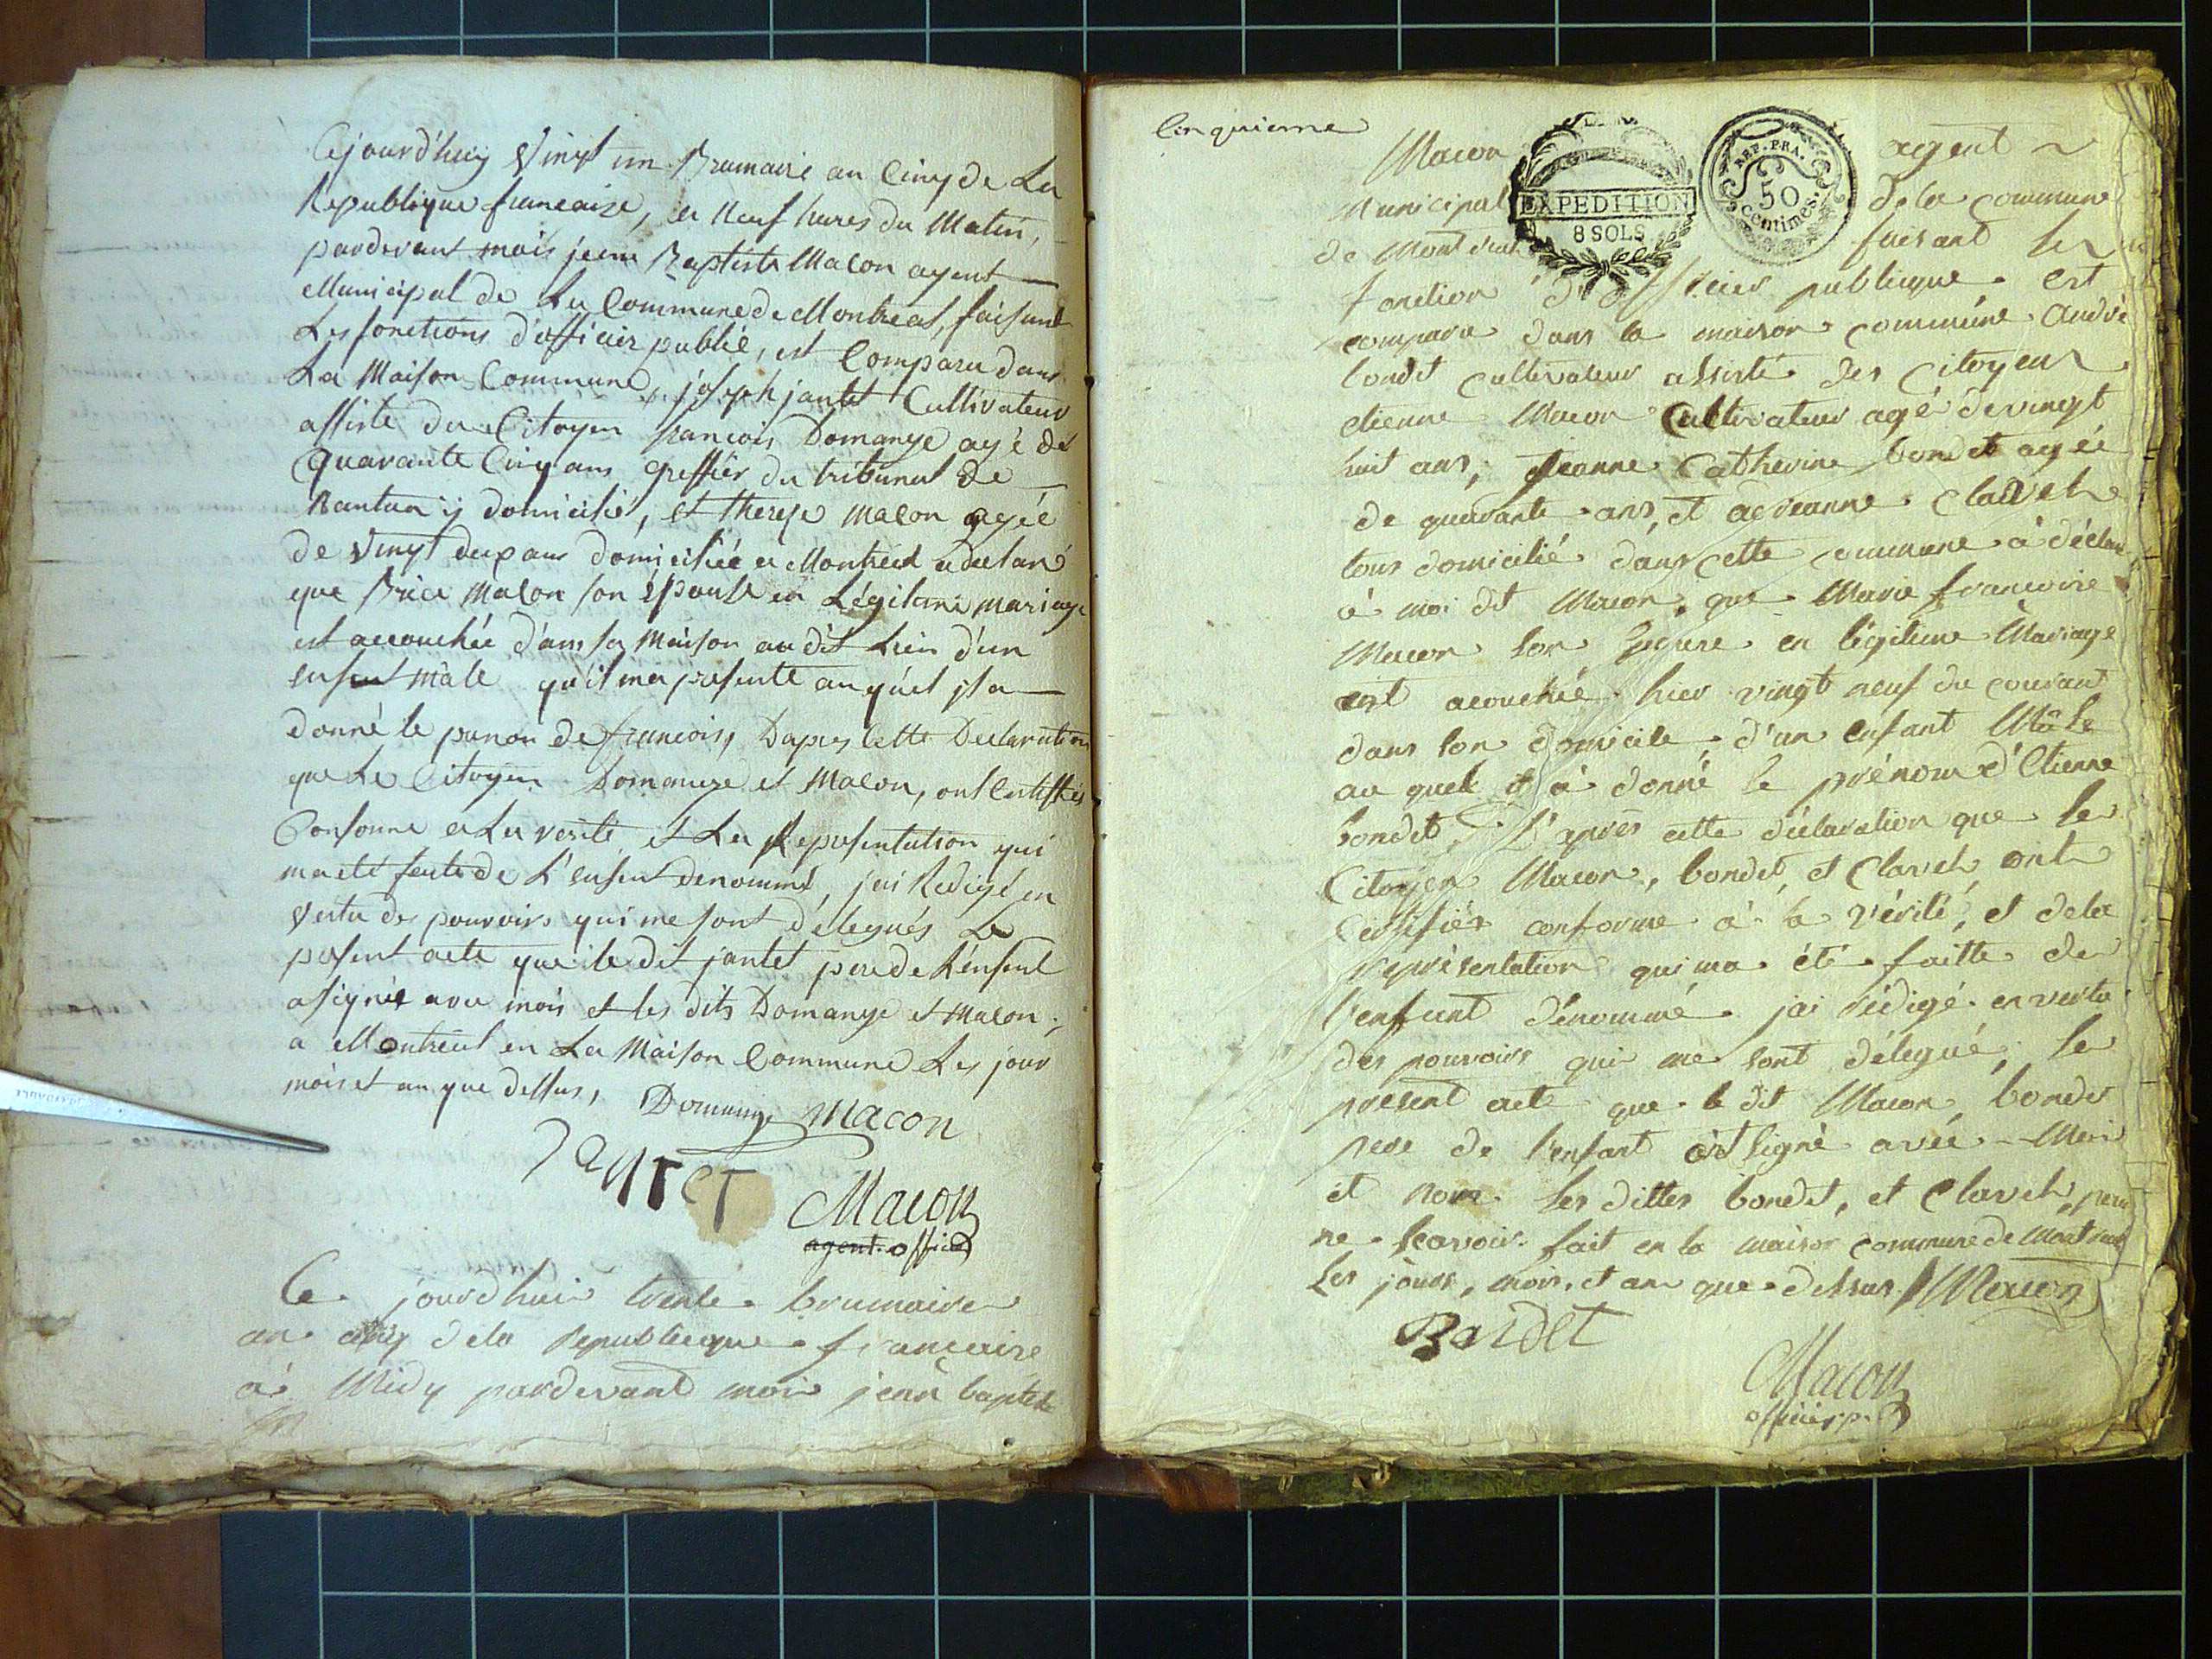 Cejourd'huy Vingt un Brumaire an Cinq de La
Republique francaise, a Neuf hures du Matin,
pardevant mois jean Baptiste Macon agent
Municipal de La Commune de Montreal, faisant
Les fonctions d'officier public, est Comparu dans
La Maison Commune, joseph jantet Cultivateur
assisté du Citoyen francois Domange agé de
Quarante Cinq ans Greffier du tribunal de
Nantua y domicilié, et therese Macon agée
de Vingt deux ans domiciliée a Montreal a declaré
que Brice Macon son Epouse en Légitime mariage
est accouchée dans sa Maison au dit Lieu d'un
enfent mâle qu'il ma presenté au quel jl a
donné le prenon de francois, Dapres Cette Declaration
que Le Citoyen Domange et Macon, ont Certiffiés
Conforme a La verité et La Representation qui
ma été faite de L'enfent denommé, jai Redigé en
Vertu des pouvoirs qui me sont délegués Le
present acte que le dit jantet pere de L'enfent
a signé avec mois et les dits Domange et Macon ;
a Montreal en La Maison Commune Les jour
mois et an que dessus,
Domange Macon
JANTET
Macon
agent officier
Ce jourdhui trente brumaire
an cinq dela Republicque francaise
à Midy pardevant moi jean baptiste
Cinquieme
Macon agent
Municipal EXPEDITION 8 SOLS REP. FRA. 50 centimes. dela commune
de Montreal faisant les
fonction d'officier publicque est
comparu dans la maison commune André
bondet cultivateur assisté des citoyens
etienne Macon Cultivateur agé de vingt
huit ans, Jeanne Catherine bondet agée
de quarante ans, et Clavel
tous domicilié dans cette commune à déclaré
à moi dit Macon, que Marie francoise
Macon son Epouse en légitime Mariage
est acouchée hier vingt neuf du courant
dans son domicile d'un enfant Mâle
au quel il à donné le prénom d'Etienne
bondet, D'apres cette déclaration que le
Citoyen Macon, bondet, et Clavel ont
Certifiés conforme à la vérité, et dela
représentation qui ma été faitte de
l'enfant dénommé jai rédigé en vertu
des pouvoirs qui me sont délegué, le
présent acte que le dit Macon, bondet
pere de l'enfant ont signé avec Moi
et non les dittes bondet, et Clavel, pour
ne scavoir. fait en la maison commune de Montreal
Les jours, mois, et an que dessus Macon
Bondet
Macon
officier p.